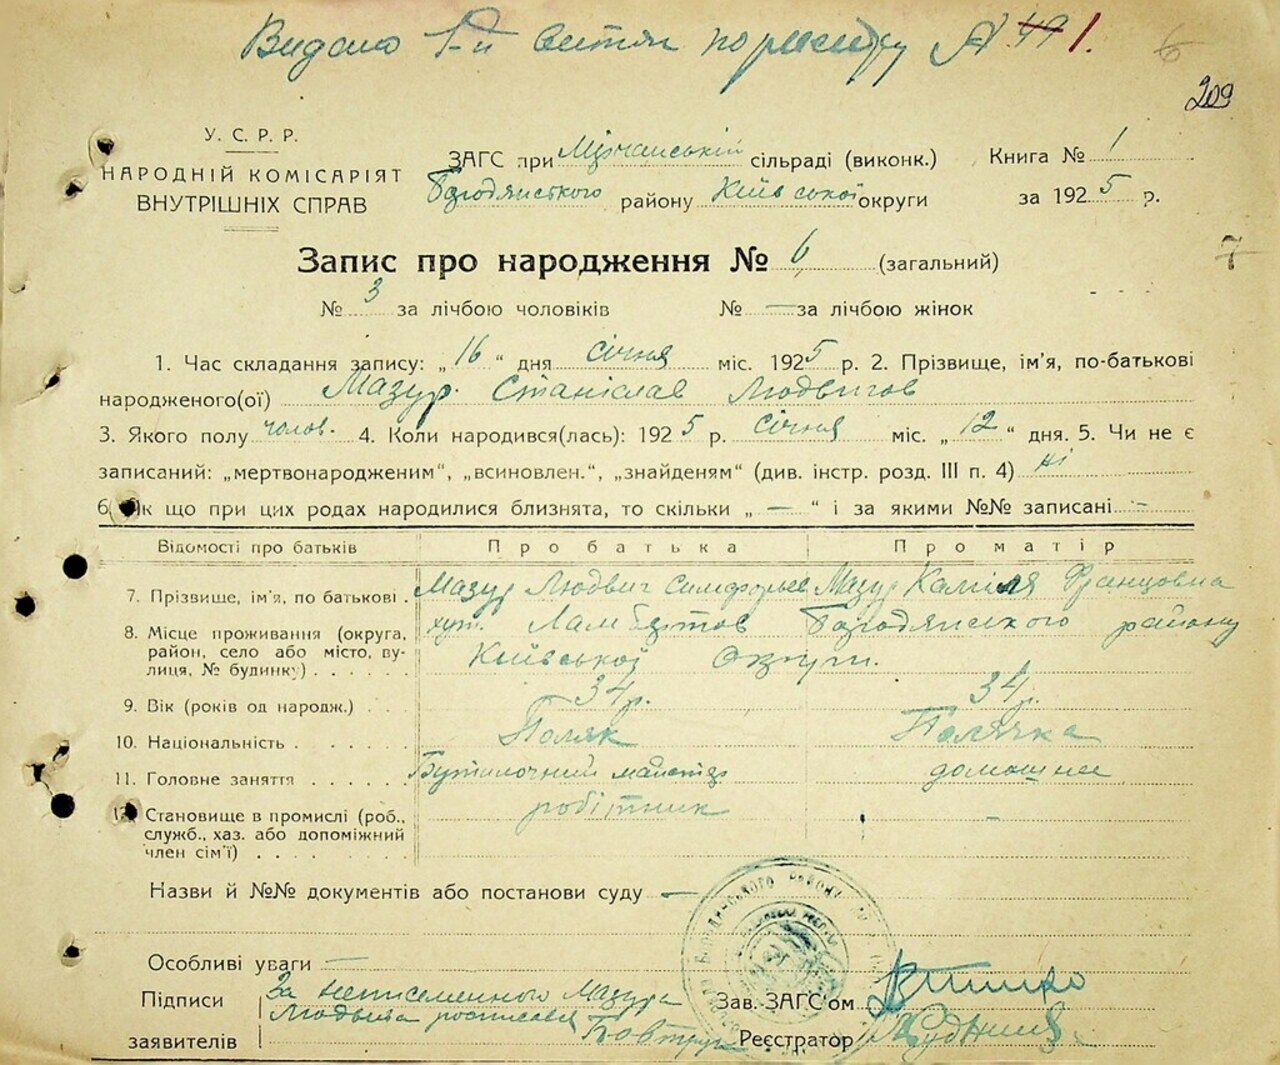 Видано 1-й витяг по реєстру № 49 1.
6
209
У. С. Р. Р.
НАРОДНІЙ КОМІСАРІЯТ
ВНУТРІШНІХ СПРАВ
ЗАГС при Мірчанській сільраді (виконк.) Книга № 1
Бородянсткого району Київської округи за 1925 р.
Запис про народження № 6 (загальний)
7
№ 3 за лічбою чоловіків № — за лічбою жінок
1. Час складання запису: „16“ дня січня міс. 1925 р. 2. Прізвище, ім'я, по-батькові
народженого(ої) Мазур Станіслав Людвигов
3. Якого полу чолов. 4. Коли народився(лась): 1925 р. січня міс. „12“ дня. 5. Чи не є
записаний: „мертвонародженим“, „всиновлен.“, „знайденям“ (див. інстр. розд. III п. 4) ні
6. Як що при цих родах народилися близнята, то скільки „ — “ і за якими №№ записані —
Відомості про батьків Про батька Про матір
7. Прізвище, ім'я, по батькові . Мазур Людвиг Симфорьев Мазур Каміля Францовна
8. Місце проживання (округа, хут. Ламбертов Бородянського району
район, село або місто, ву-
лиця, № будинку) . . . . . . Київської Округи.
9. Вік (років од народж.) . . . 34 р. 34 р.
10. Національність . . . . . . Поляк Полячка
11. Головне заняття . . . . . Бутилочний майстер домашнее
12. Становище в промислі (роб., робітник –
служб., хаз. або допоміжний
член сім'ї) . . . . . . .
Назви й №№ документів або постанови суду —
Особливі уваги —
Підписи За неписеменного Мазура Зав. ЗАГС'ом
Людвига росписався
заявителів Реєстратор